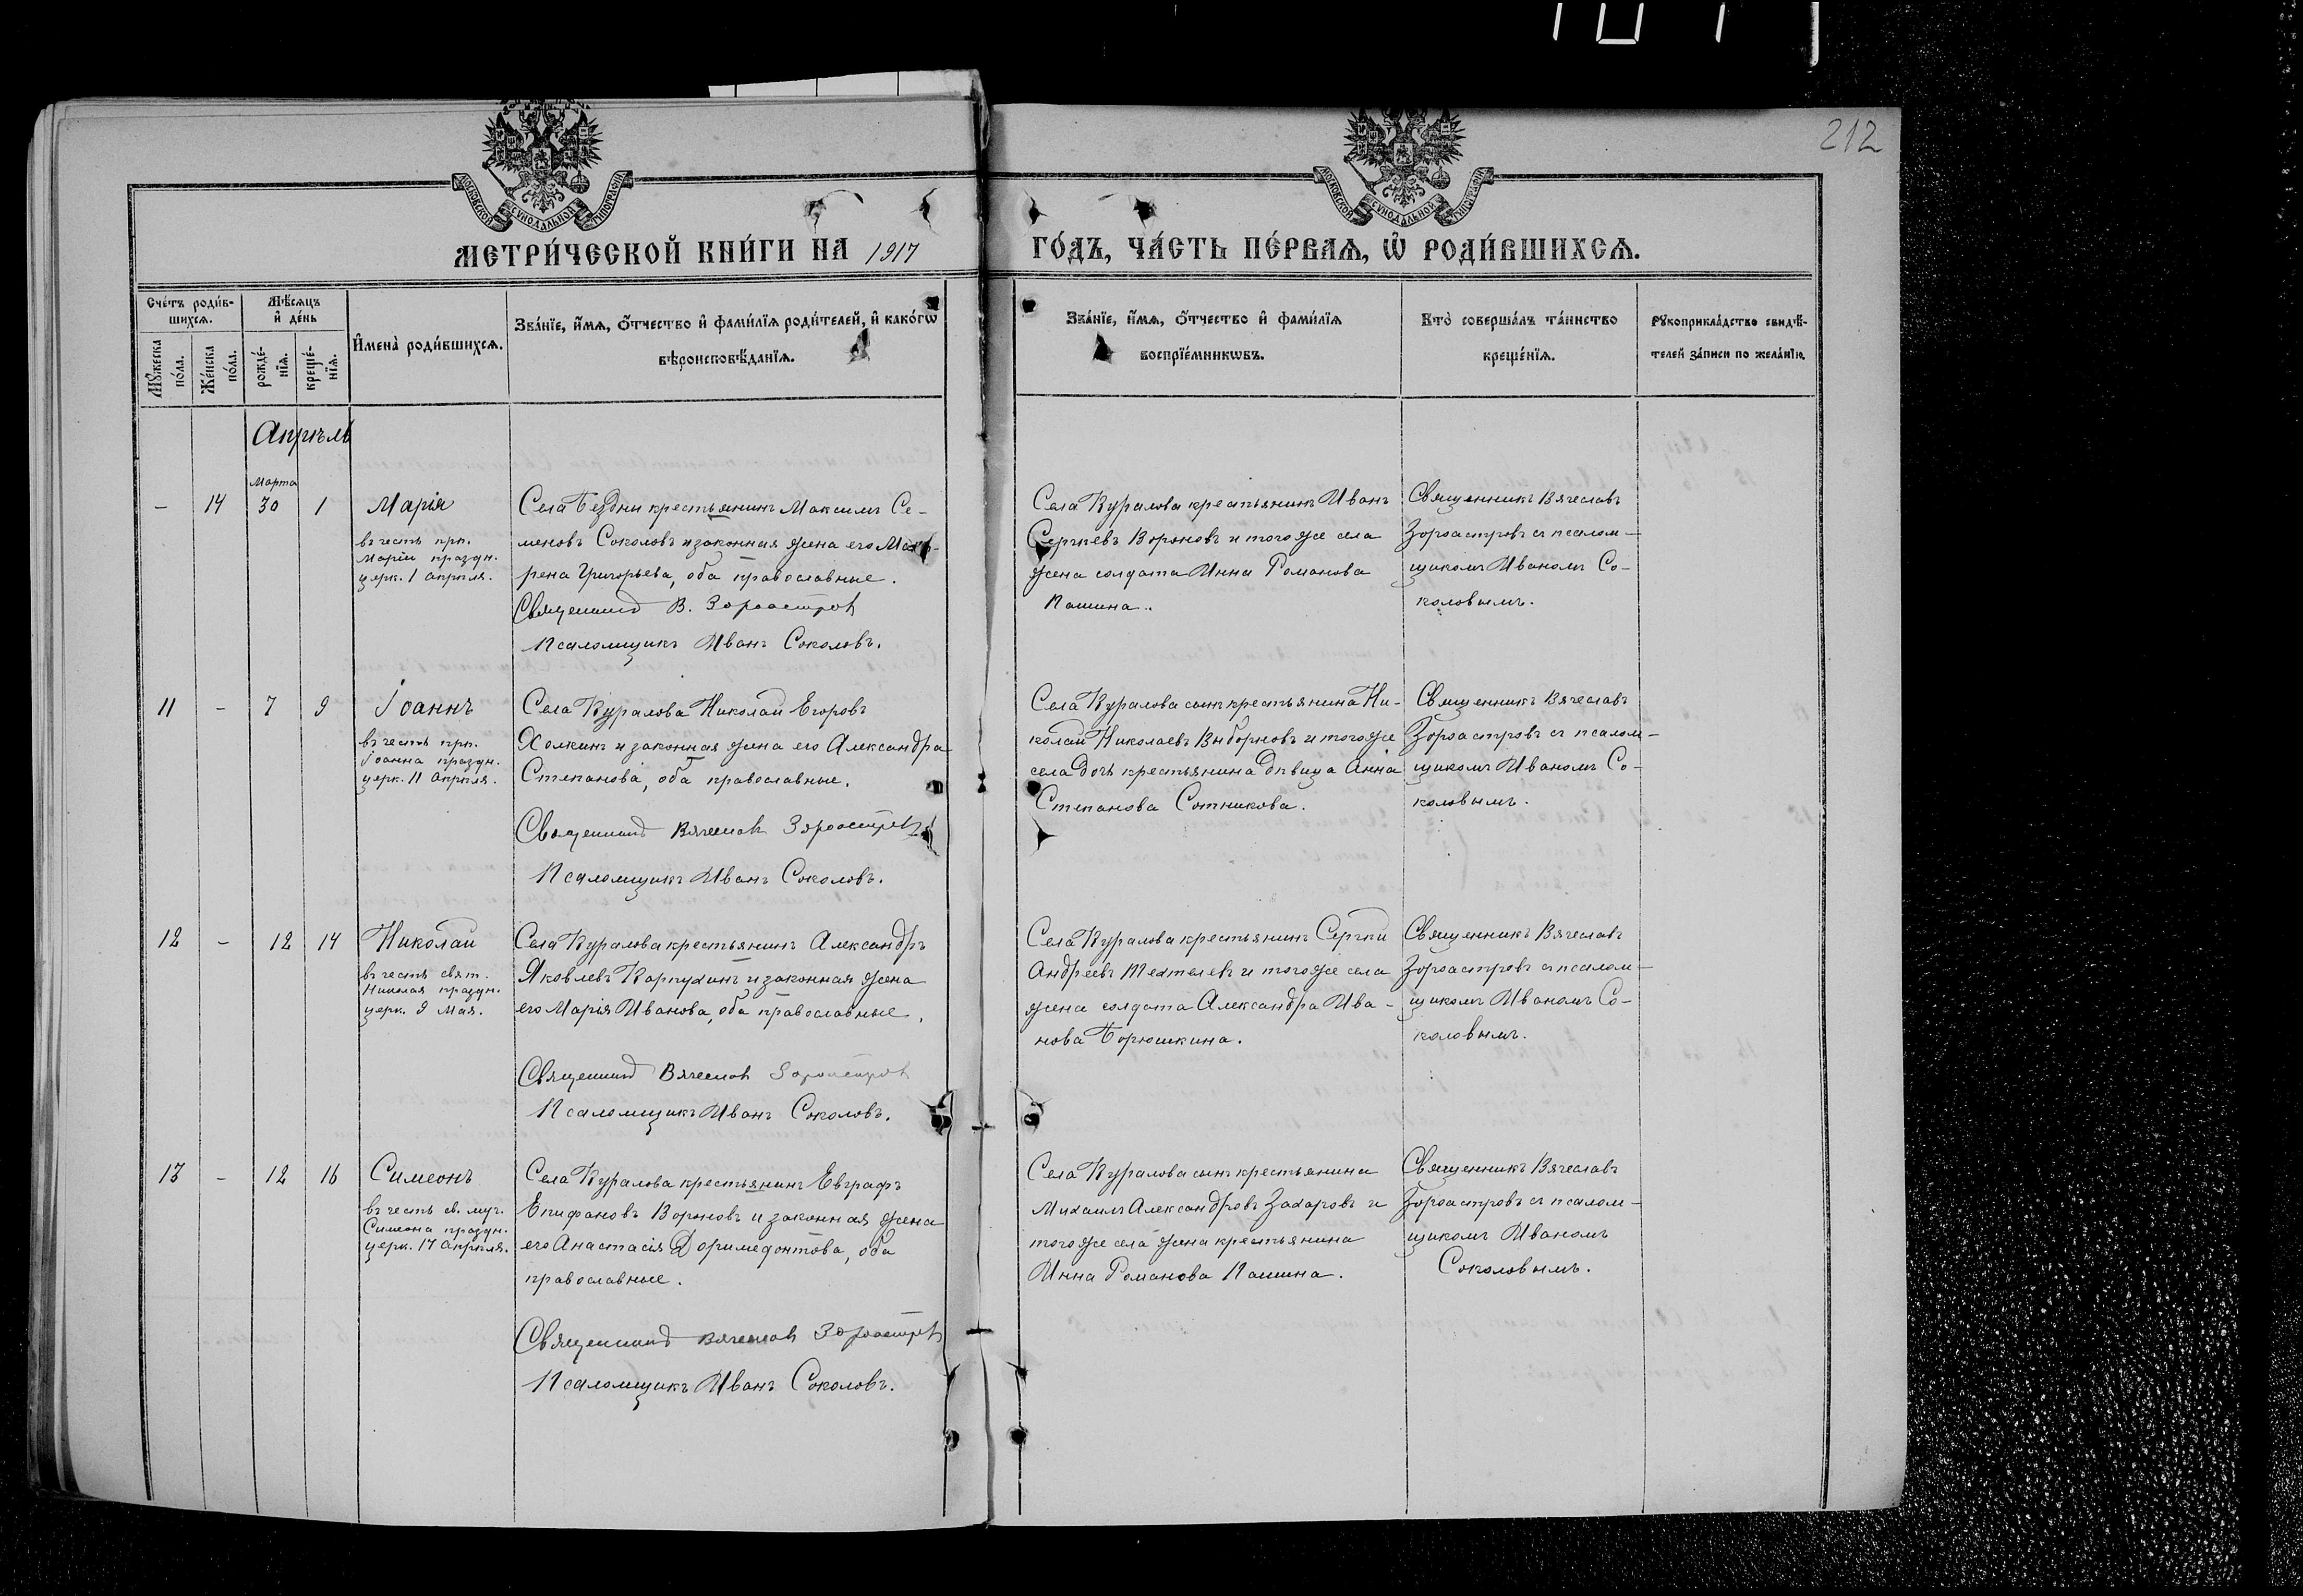 212
МОСКОВСКОЙ СѴНОДАЛЬНОЙ ТИПОГРАФІИ
МОСКОВСКОЙ СѴНОДАЛЬНОЙ ТИПОГРАФІИ
МЕТРИ́ЧЕСКОЙ КНИ́ГИ НА 1917 ГО́ДЪ, ЧА́СТЬ ПЕ́РВАѦ, Ѡ҆ РОДИ́ВШИХСѦ.
Сче́тъ роди́в-
шихсѧ.
Мꙋ́жеска по́ла.
Же́нска по́ла.
Мѣ́сѧцъ
и҆ де́нь
рожде́-
нїѧ.
креще́-
нїѧ.
И҆мена̀ роди́вшихсѧ.
Зва́нїе, и҆́мѧ, ѻ҆́тчество и҆ фами́лїѧ роди́телей, и҆ како́гѡ
вѣроисповѣ́данїѧ.
Зва́нїе, и҆́мѧ, ѻ҆́тчество и҆ фами́лїѧ
воспрїе́мникѡвъ.
Кто̀ соверша́лъ та́инство
креще́нїѧ.
Рꙋкоприкла́дство свидѣ́-
телей за́писи по жела́нїю.
Апрѣль
Марта
– 14 30 1 Марія
въ честь прп.
Маріи праздн.
церк. 1 апрѣля.
Села Бездны крестьянинъ Максимъ Се-
меновъ Соколовъ и законная жена его Мак-
рена Григорьева, оба православные.
Священникъ В. Зороастровъ
Псаломщикъ Иванъ Соколовъ.
Села Куралова крестьянинъ Иванъ
Сергѣевъ Вороновъ и того же села
жена солдата Инна Романова
Пашина.
Священникъ Вячеславъ
Зороастровъ съ псалом-
щикомъ Иваномъ Со-
коловымъ.
11 – 7 9 Іоаннъ
въ честь прп.
Іоанна праздн.
церк. 11 апрѣля.
Села Куралова Николай Егоровъ
Холкинъ и законная жена его Александра
Степанова, оба православные.
Священникъ Вячеславъ Зороастровъ
Псаломщикъ Иванъ Соколовъ.
Села Куралова сынъ крестьянина Ни-
колай Николаевъ Выборновъ и того же
села дочь крестьянина дѣвица Анна
Степанова Сотникова.
Священникъ Вячеславъ
Зороастровъ съ псалом-
щикомъ Иваномъ Со-
коловымъ.
12 – 12 14 Николай
въ честь свят.
Николая праздн.
церк. 9 Мая.
Села Куралова крестьянинъ Александръ
Яковлевъ Карпухинъ и законная жена
его Марія Иванова, оба православные.
Священникъ Вячеславъ Зороастровъ
Псаломщикъ Иванъ Соколовъ.
Села Куралова крестьянинъ Сергѣй
Андреевъ Техтелевъ и того же села
жена солдата Александра Ива-
нова Борюшкина.
Священникъ Вячеславъ
Зороастровъ съ псалом-
щикомъ Иваномъ Со-
коловымъ.
13 – 12 16 Симеонъ
въ честь св. муч.
Симеона праздн.
церк. 17 апрѣля.
Села Куралова крестьянинъ Евграфъ
Епифановъ Вороновъ и законная жена
его Анастасія Доримедонтова, оба
православные.
Священникъ Вячеславъ Зороастровъ
Псаломщикъ Иванъ Соколовъ.
Села Куралова сынъ крестьянина
Михаилъ Александровъ Захаровъ и
того же села жена крестьянина
Инна Романова Пашина.
Священникъ Вячеславъ
Зороастровъ съ псалом-
щикомъ Иваномъ
Соколовымъ.